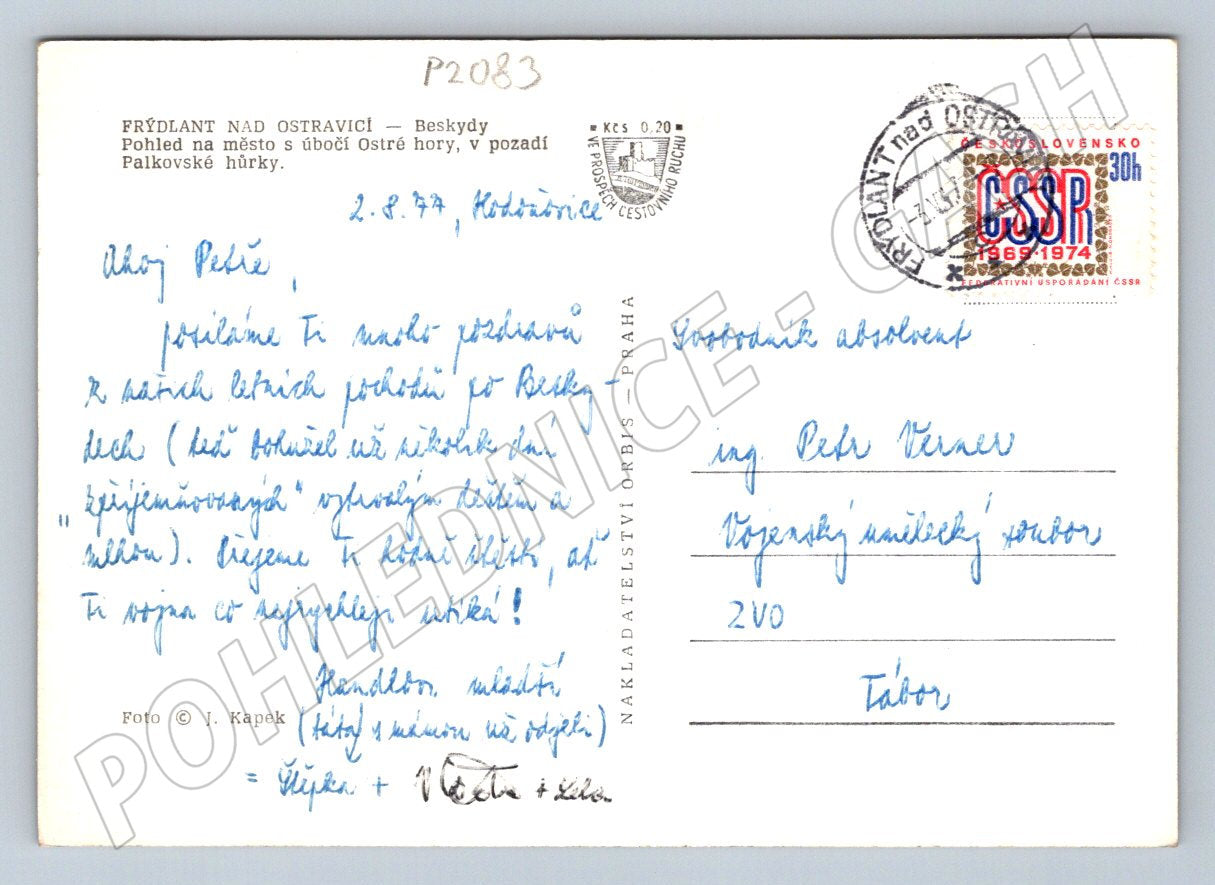 P2083
FRÝDLANT NAD OSTRAVICÍ — Beskydy
Pohled na město s úbočí Ostré hory, v pozadí
Palkovské hůrky.
Kčs 0,20
VE PROSPĚCH CESTOVNÍHO RUCHU
FRÝDLANT nad OSTRAVICÍ
ČESKOSLOVENSKO
30h
ČSSR
1969·1974
FEDERATIVNÍ USPOŘÁDÁNÍ ČSSR
2.8.77, Hodoňovice
Ahoj Petře,
posíláme Ti mnoho pozdravů
z našich letních pochodů po Besky-
dech (teď bohužel už několik dní
„zpříjemňovaných" vytrvalým deštěm a
mlhou). Přejeme Ti hodně štěstí, ať
Ti vojna co nejrychleji utíká!
mladší
(táta s mámou už odjeli)
= Štěpka +
Foto © J. Kapek
NAKLADATELSTVÍ ORBIS — PRAHA
Svobodník absolvent
ing. Petr Verner
Vojenský umělecký soubor
ZVO
Tábor
POHLEDNICE - CASH